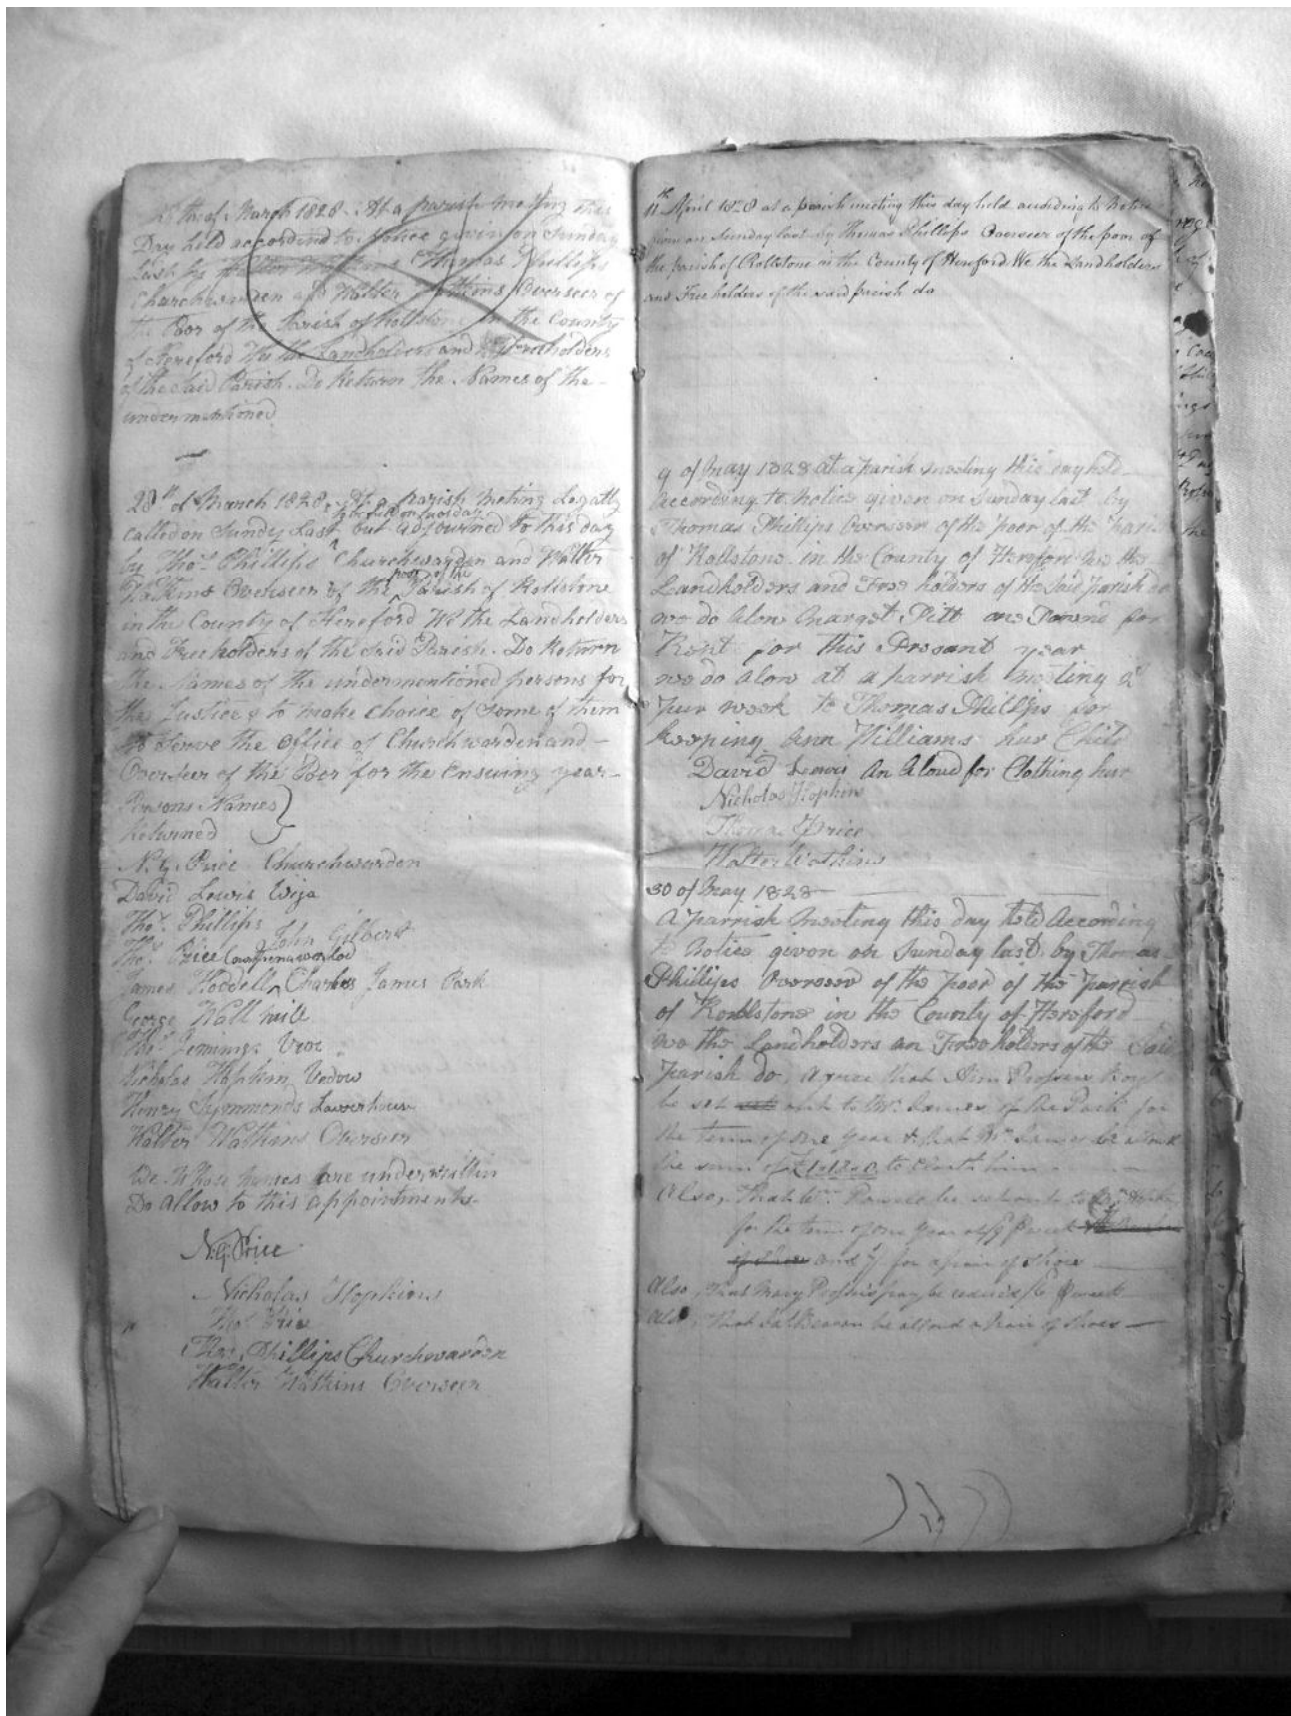 of March 1828. At a parish meeting this
Day held according to Notice given on Sunday
Last by Thomas Phillips
Churchwarden and Walter Watkins Overseer of
the Poor of the Parish of Rollstone in the County
of Hereford We the Landholders and Freeholders
of the said Parish. Do Return the Names of the
undermentioned
28th of March 1828. At a parish meting Legally
called on Sundy Last but adjourned to this day
by Thos. Phillips Churchwarden and Walter
Watkins Overseer of the poor of the Parish of Rollstone
in the County of Hereford We the Landholders
and Freeholders of the said Parish. Do Return
the Names of the undermentioned persons for
the Justices to make choice of some of them
to serve the office of Churchwarden and
Overseer of the Poor for the Ensuing year
Persons Names
Returned
N.G. Price Churchwarden
David Lewis Wija
Thos. Phillips
John Gilbert
Thos. Price
James Hoddell Charles James Park
George Wall mill
Thos. Jennings
Nicholas Hopkin Vedow
Henry Symmonds
Walter Watkins Overseer
We Whose names are underwritten
Do allow to this appointments
N.G. Price
Nicholas Hopkins
Thos. Price
Thos. Phillips Churchwarden
Walter Watkins Overseer
11th April 1828 at a parish meeting this day held according to notice
given on Sunday last by Thomas Phillips Overseer of the poor of
the parish of Rollstone in the County of Hereford We the Landholders
and Freeholders of the said parish do
9 of May 1828 at a parish meeting this day held
According to Notice given on Sunday last by
Thomas Phillips Overseer of the poor of the
of Rollstone in the County of Hereford we the
Landholders and Free holders of the Said parish do
we do alow Margret Pitt one Pound for
Rent for this Presant year
we do alow at a parrish meeting
pur week to Thomas Phillips for
keeping Ann Williams hur Child
David Lewis an aloud for Clothing hur
Nicholas Hopkins
Thomas Price
Walter Watkins
30 of May 1828
A parrish meeting this day held According
to Notice given on Sunday last by Thomas
Phillips Overseer of the poor of the parrish
of Rowlstone in the County of Hereford
we the Landholders an Free holders of the Said
Parish do, agree that
be set out to Mr. James of the Park for
the term of one year & that Mr. James be allowd
the sum of to Cloath him
Also, That Wm. Powell be set out to
for the term of one year at week
of shoes and for a pair of shoes
Also, That Mary pay be reduced to week
Also, That be allowd a Pair of Shoes